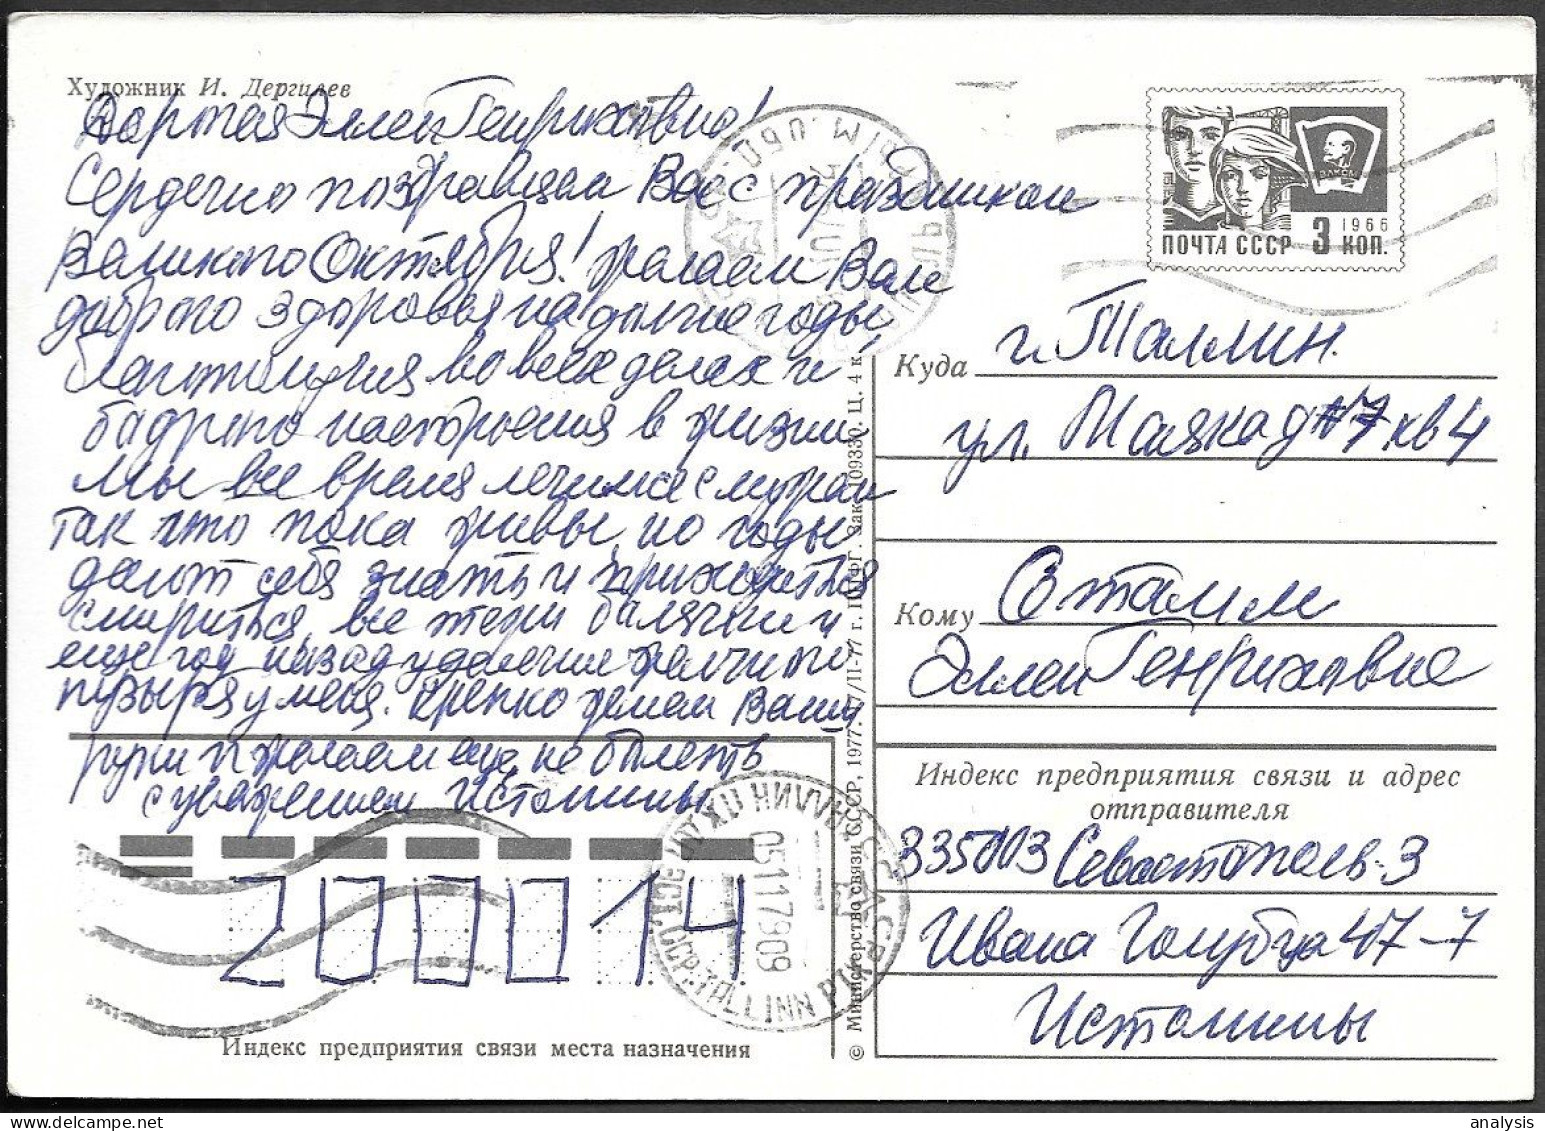 Художник И. Дергилев
Дорогая Эллен Генриховна!
Сердечно поздравляем Вас с праздником
Великого Октября! желаем Вам
доброго здоровья на долгие годы,
благополучия во всех делах и
бодрого настроения в жизни
Мы все время лечимся с мужем
так что пока живы, но годы
дают себя знать и приходится
смириться, все те же болячки и
еще год назад удаление желчного
пузыря у меня. Крепко жмем Ваши
руки и желаем еще не болеть
с уважением Истомины
ВЛКСМ
1966
ПОЧТА СССР 3 КОП.
Куда г. Таллин.
ул. Маяка д № 7 кв 4
Кому Оталим
Эллен Генриховне
Индекс предприятия связи и адрес
отправителя
335003 Севастополь-3
Ивана Голубца 47-7
Истомины
200014
Индекс предприятия связи места назначения
© Министерство связи СССР, 1977. 7/II-77 г. ППФГ. Зак. 709330. Ц. 4 к.
ТАЛЛИН ПХДП
05117909
TALLINN
analysis